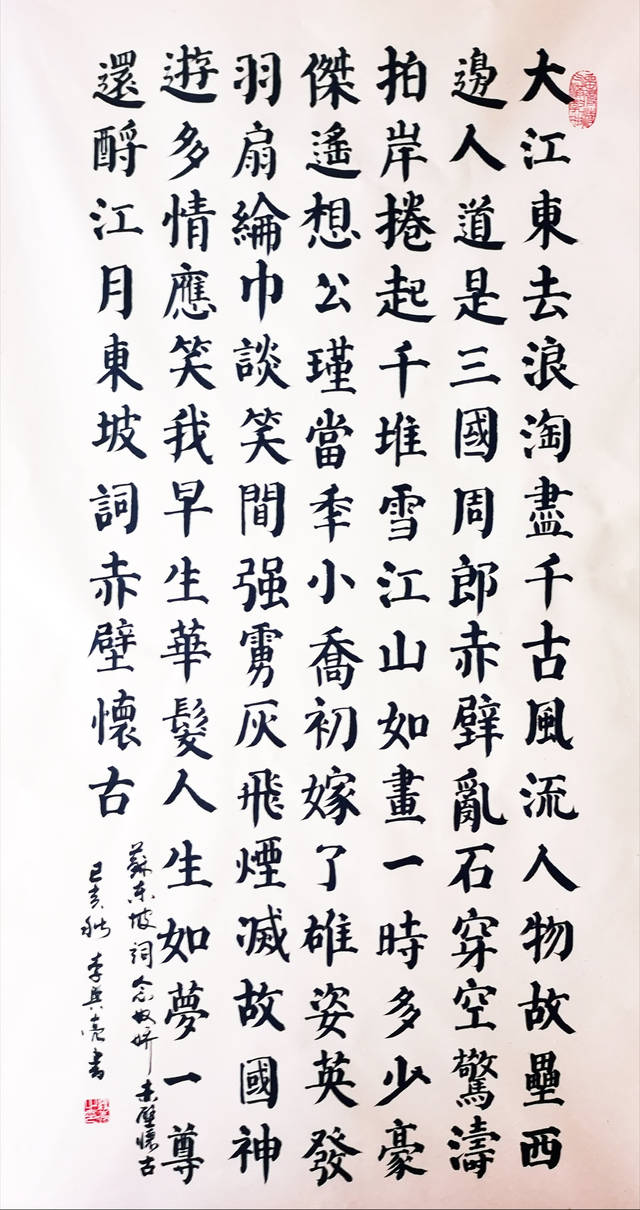 大江東去浪淘盡千古風流人物故壘西
邊人道是三國周郎赤壁亂石穿空驚濤
拍岸捲起千堆雪江山如畫一時多少豪
傑遙想公瑾當季小喬初嫁了雄姿英發
羽扇綸巾談笑間强虜灰飛煙滅故國神
遊多情應笑我早生華髮人生如夢一尊
還酹江月東坡詞赤壁懷古
蘇东坡词念奴娇赤壁懷古
己亥秋 李興亮書